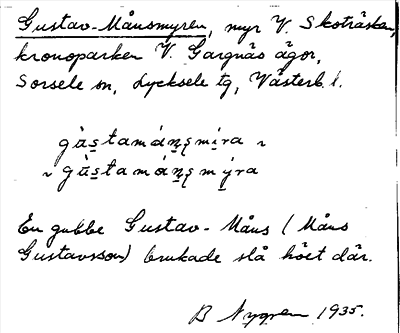 Gustav-Månsmyren, myr V. Skoträskan,
kronoparken V. Gargnäs ägor,
Sorsele sn, Lycksele tg, Västerb. l.
gùstamánsmira ~
~ gùstamánsmýra
En gubbe Gustav-Måns (Måns
Gustavsson) brukade slå höet där.
B Nygren 1935.